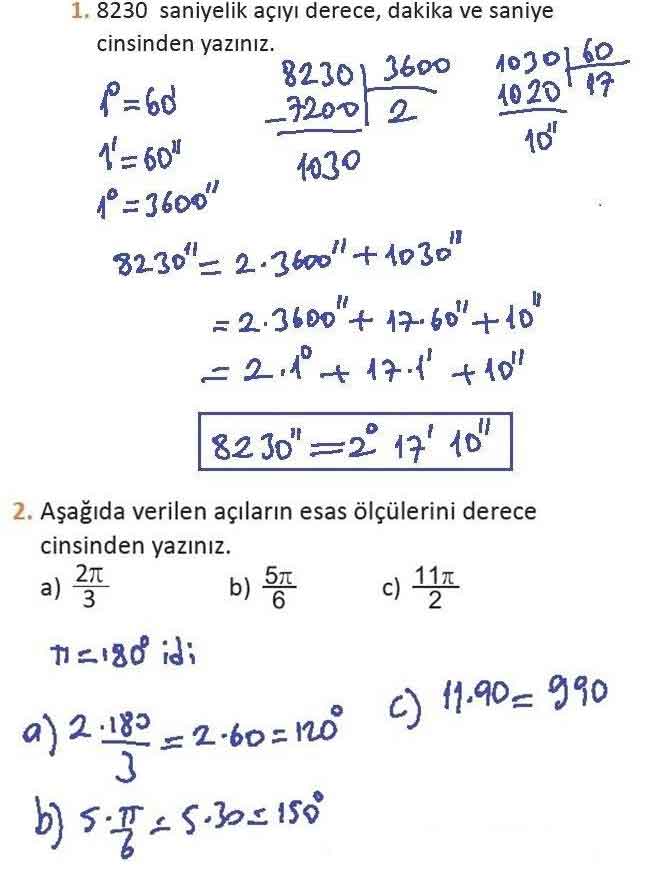 1. 8230 saniyelik açıyı derece, dakika ve saniye
cinsinden yazınız.
1° = 60'
1' = 60"
1° = 3600"
8230 | 3600
-7200 | 2
1030
1030 | 60
1020 | 17
10"
8230" = 2.3600" + 1030"
= 2.3600" + 17.60" + 10"
= 2.1° + 17.1' + 10"
8230" = 2° 17' 10"
2. Aşağıda verilen açıların esas ölçülerini derece
cinsinden yazınız.
a) 2π/3 b) 5π/6 c) 11π/2
π = 180° idi
a) 2.180/3 = 2.60 = 120°
b) 5.π/6 = 5.30 = 150°
c) 11.90 = 990